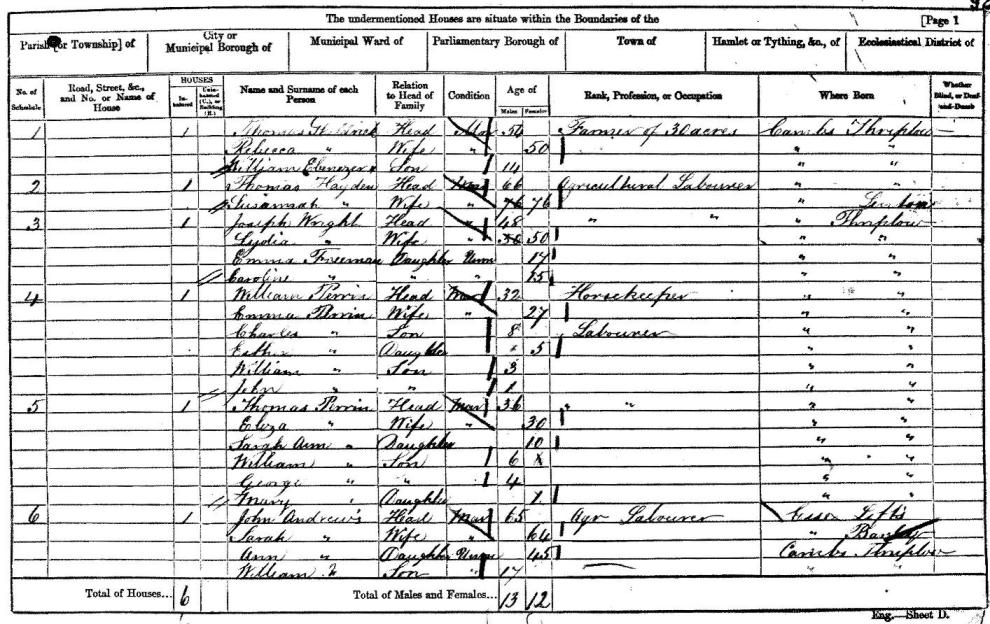 The undermentioned Houses are situate within the Boundaries of the [Page 1
Parish [or Township] of City or Municipal Borough of Municipal Ward of Parliamentary Borough of Town of Hamlet or Tything, &c., of Ecclesiastical District of
No. of Schedule Road, Street, &c., and No. or Name of House HOUSES Inhabited Uninhabited (U.), or Building (B.) Name and Surname of each Person Relation to Head of Family Condition Age of Males Females Rank, Profession, or Occupation Where Born Whether Blind, or Deaf-and-Dumb
1 1 Thomas Head Mar 54 Farmer of 30 acres Cambs Thriplow
Rebecca " Wife " 50 " "
William Ebenezer " Son 14 " "
2 1 Thomas Hayden Head Mar 66 Agricultural Labourer " "
Susannah " Wife " 76 76 "
3 1 Joseph Wright Head " 48 " " " Thriplow
Lydia " Wife " 50 " "
Emma Freeman Daughter Unm 17 " "
Caroline " " " 15 " "
4 1 William Perrin Head Mar 32 Horsekeeper " "
Emma Perrin Wife " 27 " "
Charles " Son 8 Labourer " "
Esther " Daughter 5 " "
William " Son 3 " "
John " " 1 " "
5 1 Thomas Perrin Head Mar 36 " " " "
Eliza " Wife " 30 " "
Sarah Ann " Daughter 10 " "
William " Son 6 " "
George " " 4 " "
Mary " Daughter 1 " "
6 1 John Andrews Head Mar 65 Agr Labourer Essex
Sarah " Wife " 64 "
Ann " Daughter Unm 45 Cambs Thriplow
William " Son " 17 " "
Total of Houses... 6 Total of Males and Females... 13 12
Eng.—Sheet D.